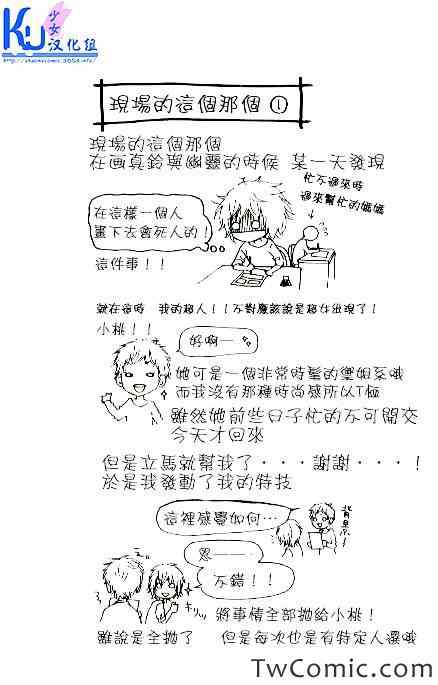 KU
少女
汉化组
現場的這個那個 ①
現場的這個那個
在画真鈴與幽靈的時候 某一天發現
忙不過來時
過來幫忙的媽媽
在這樣一個人
畫下去會死人的！
這件事！！
就在這時 我的超人！！不對應該說是超女出現了！
小桃！！
好啊—
她可是一個非常時髦的蘿蔔菜哦
而我沒有那種時尚感所以T恤
雖然她前些日子忙的不可開交
今天才回來
但是立馬就幫我了・・・謝謝・・・！
於是我發動了我的特技
這裡感覺如何…
背景！
忽——
不錯！！
キリッ
將事情全部拋給小桃！
雖說是全拋了 但是每次也是有特定人選哦
TwComic.com